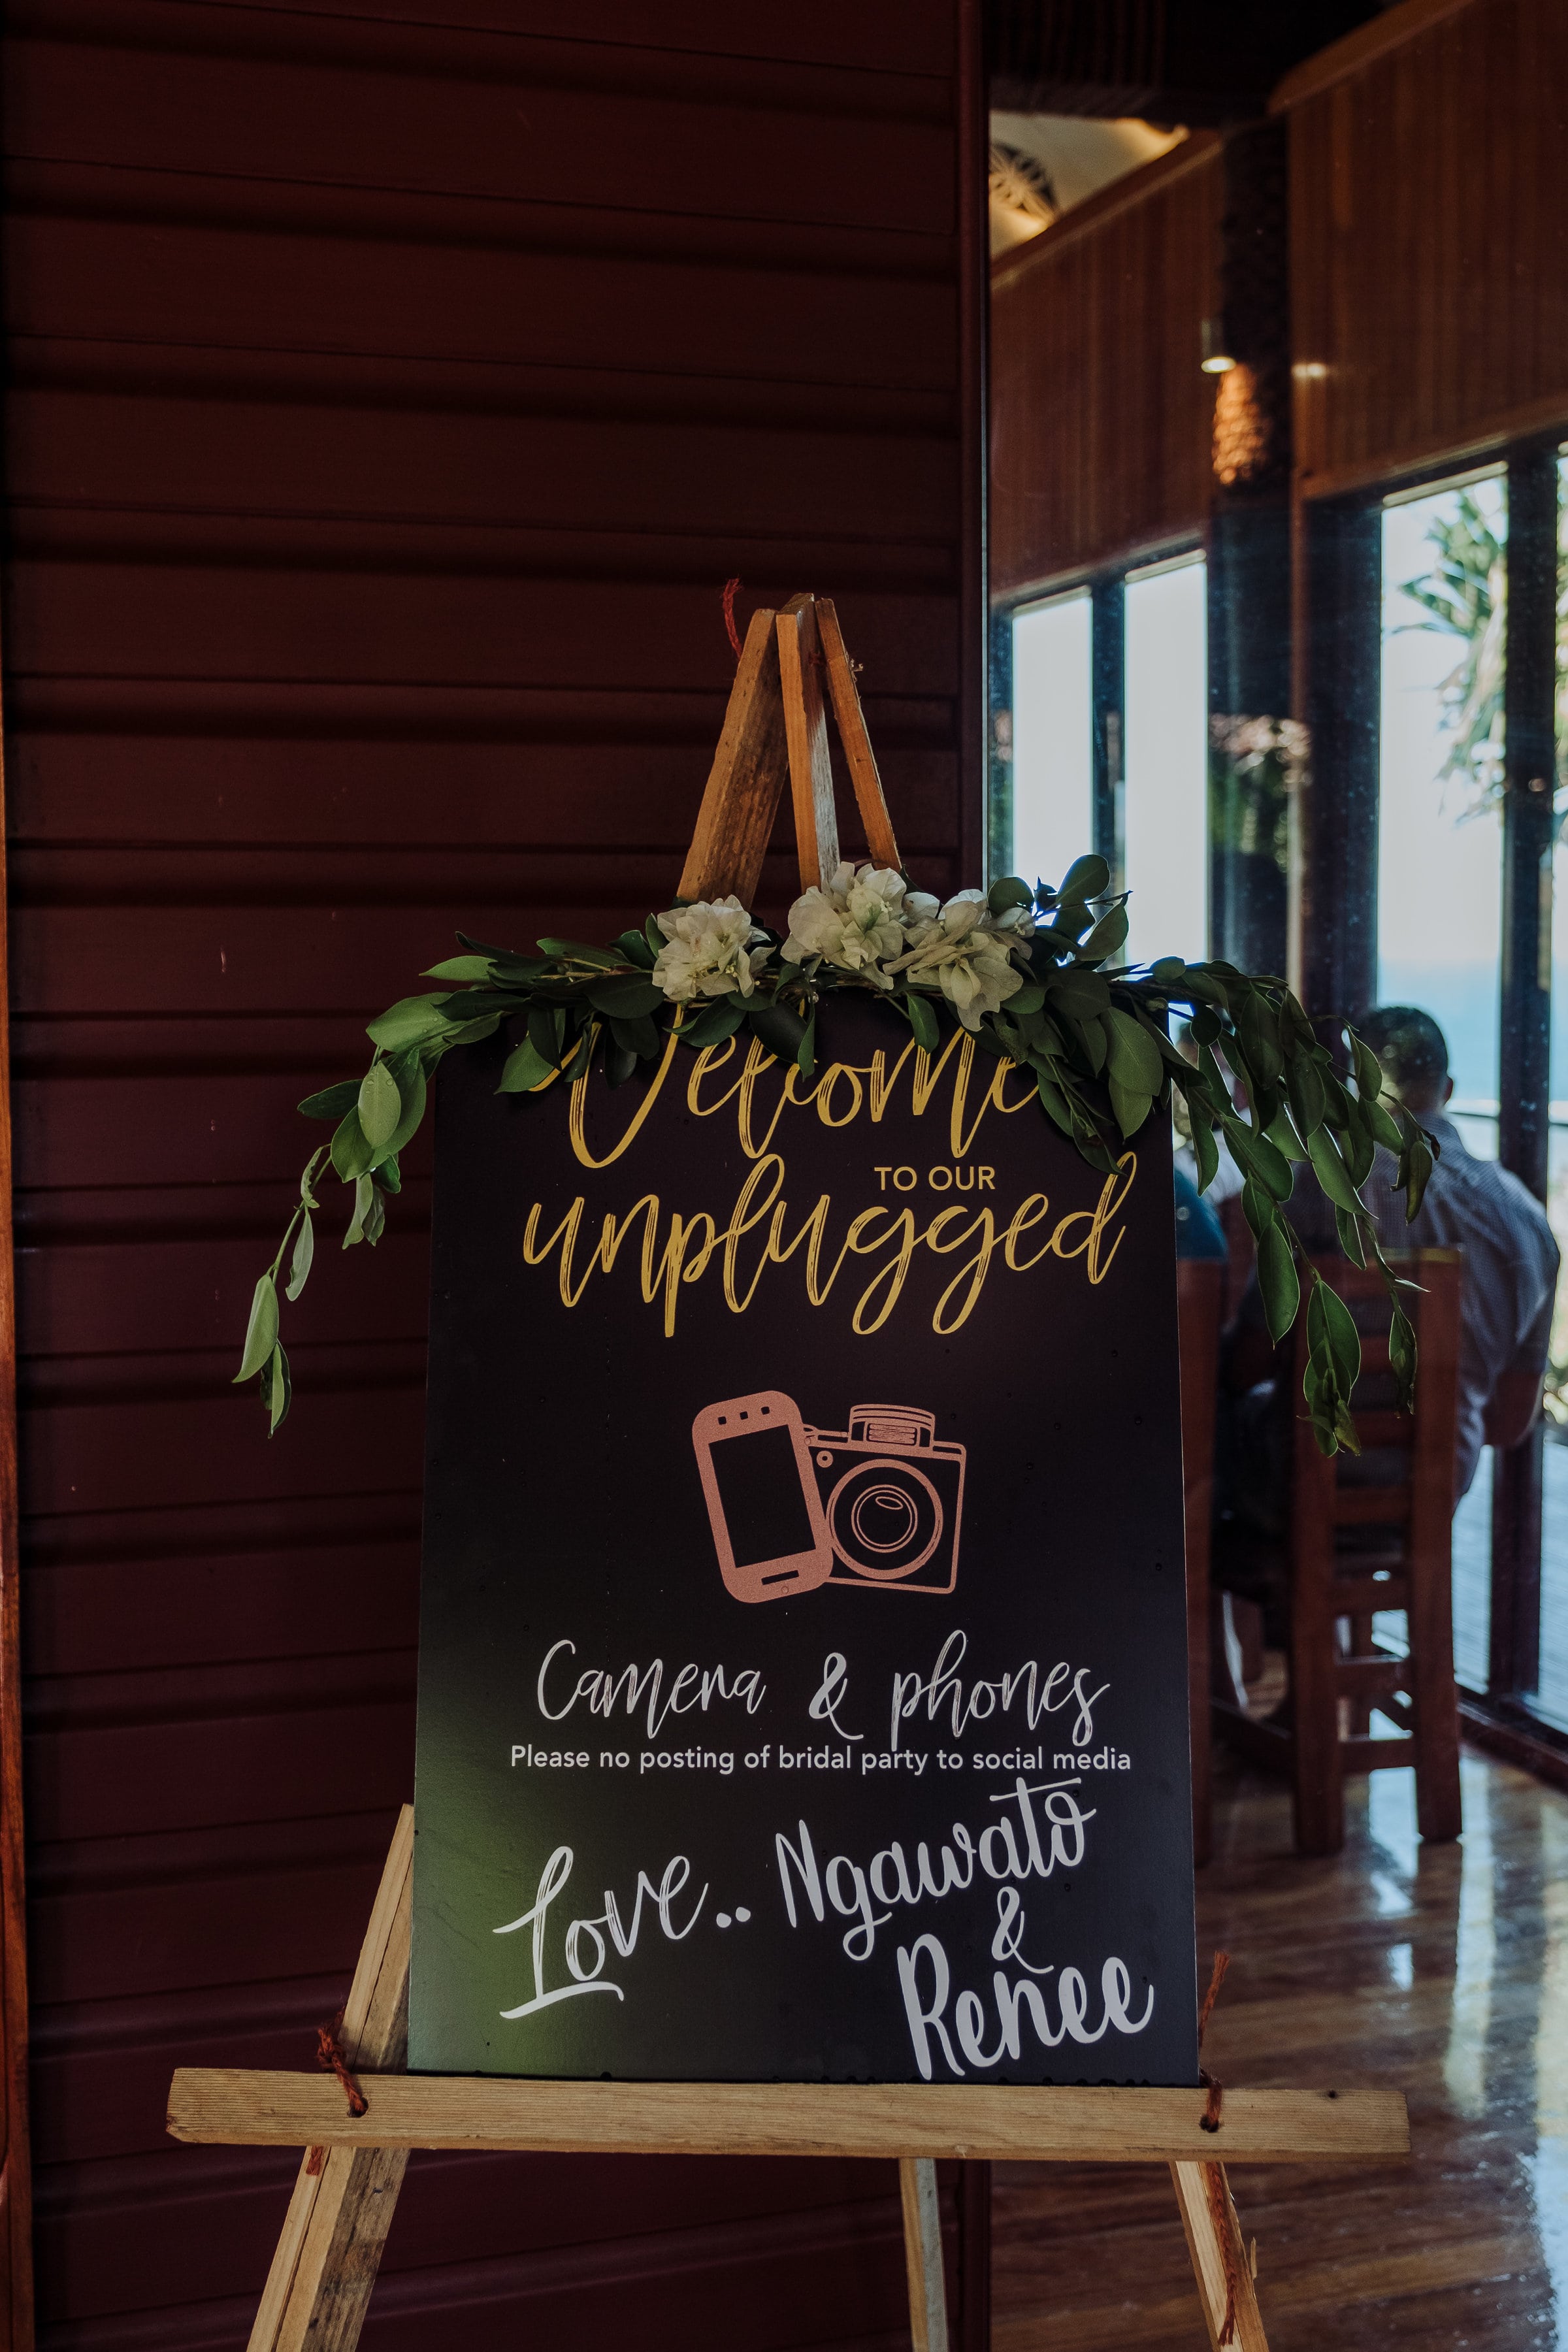 Welcome
TO OUR
unplugged
Camera & phones
Please no posting of bridal party to social media
Love.. Ngawato
&
Renee